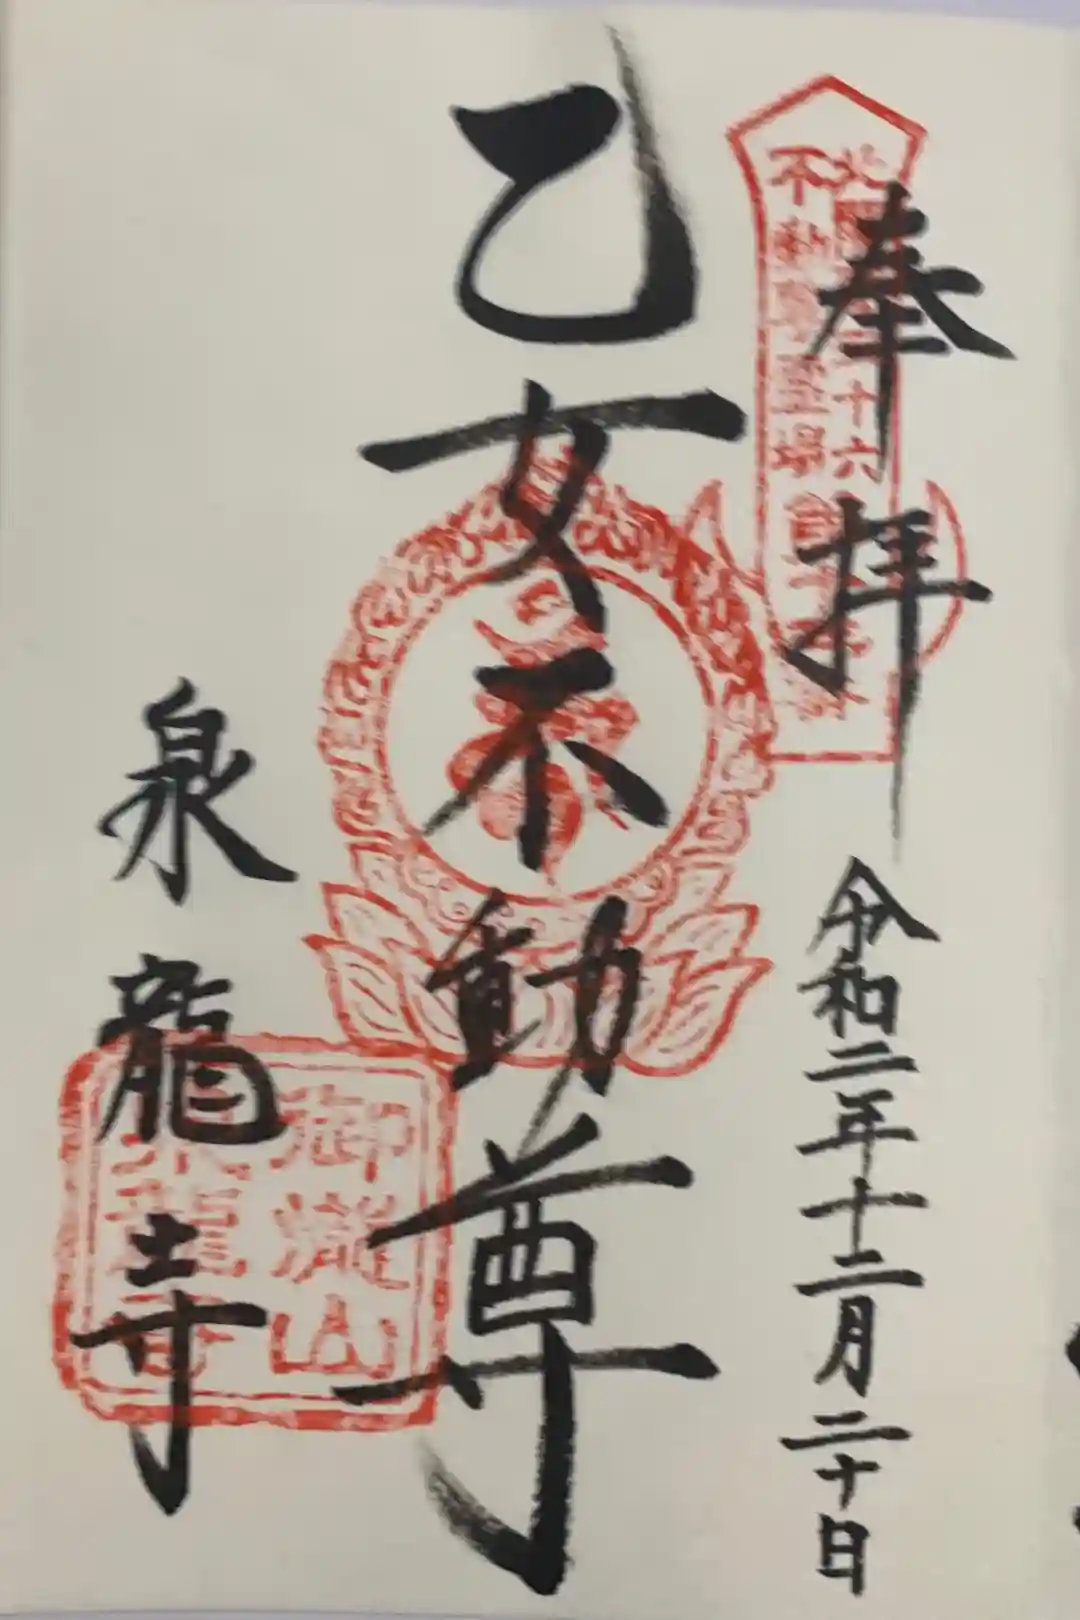 奉拝
令和二年十二月二十日
乙女不動尊
泉龍寺
北関東三十六
不動尊霊場
御瀧山